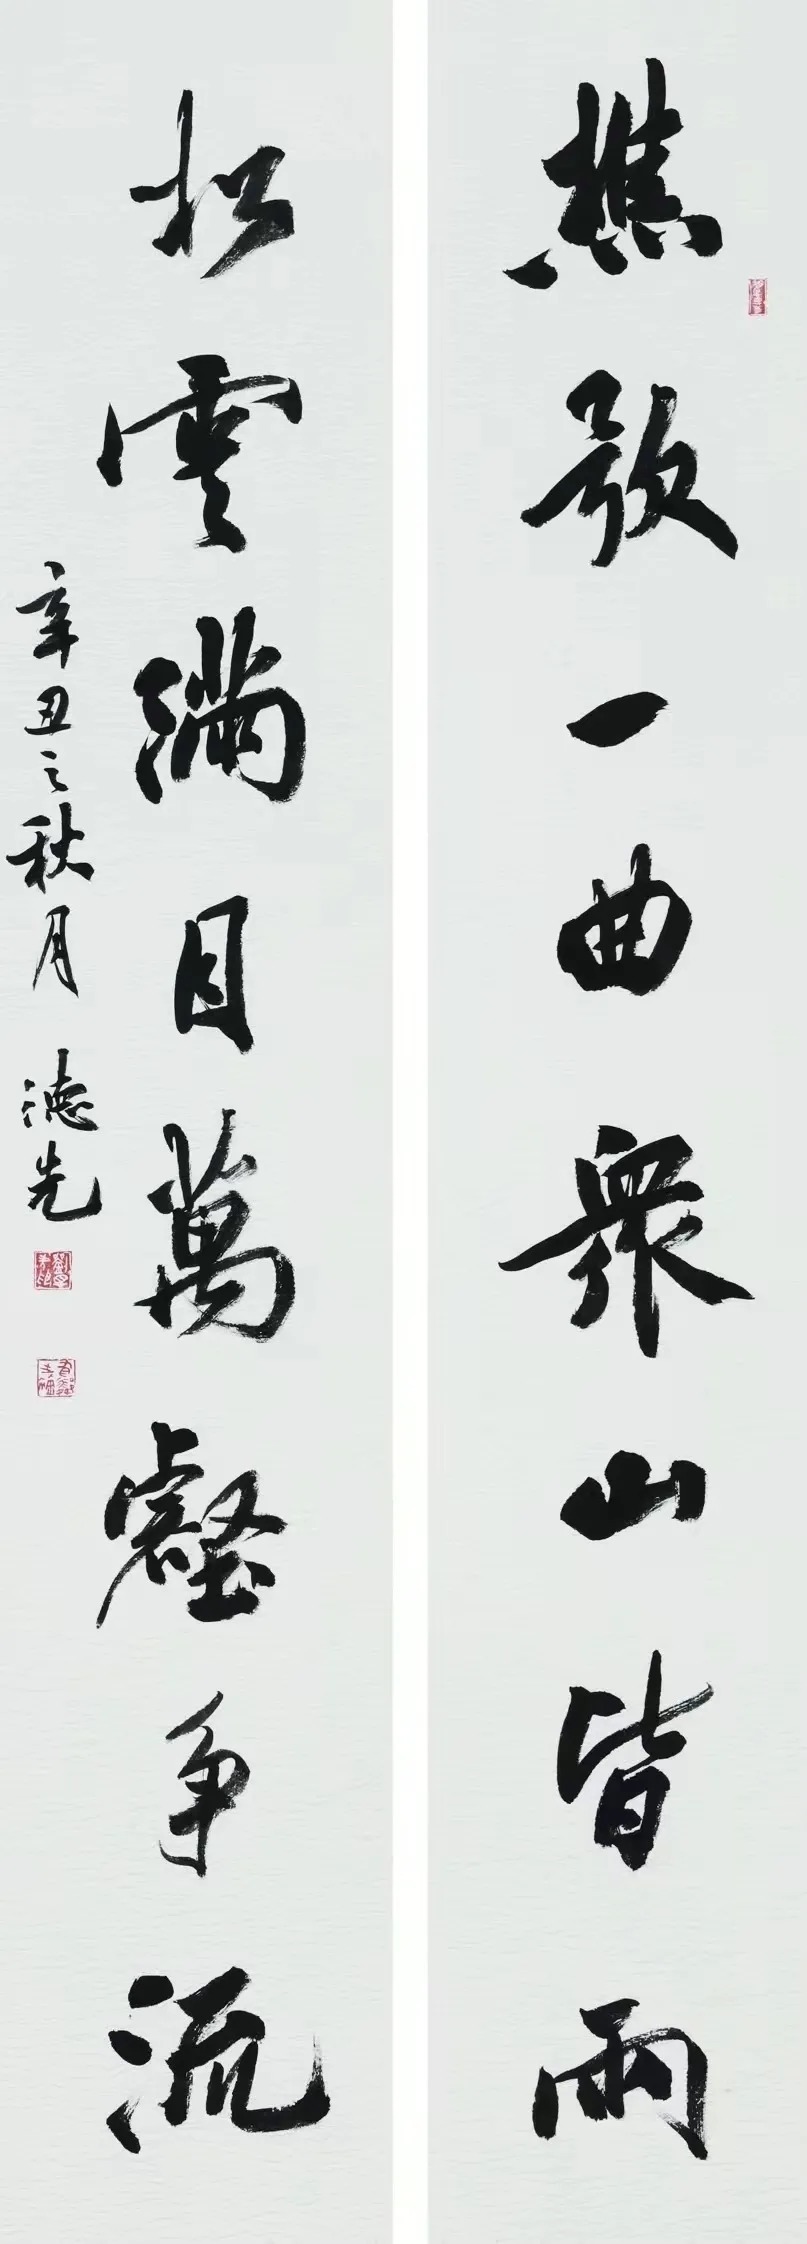 樵歌一曲眾山皆雨
松雲滿目萬壑爭流
辛丑之秋月 德先